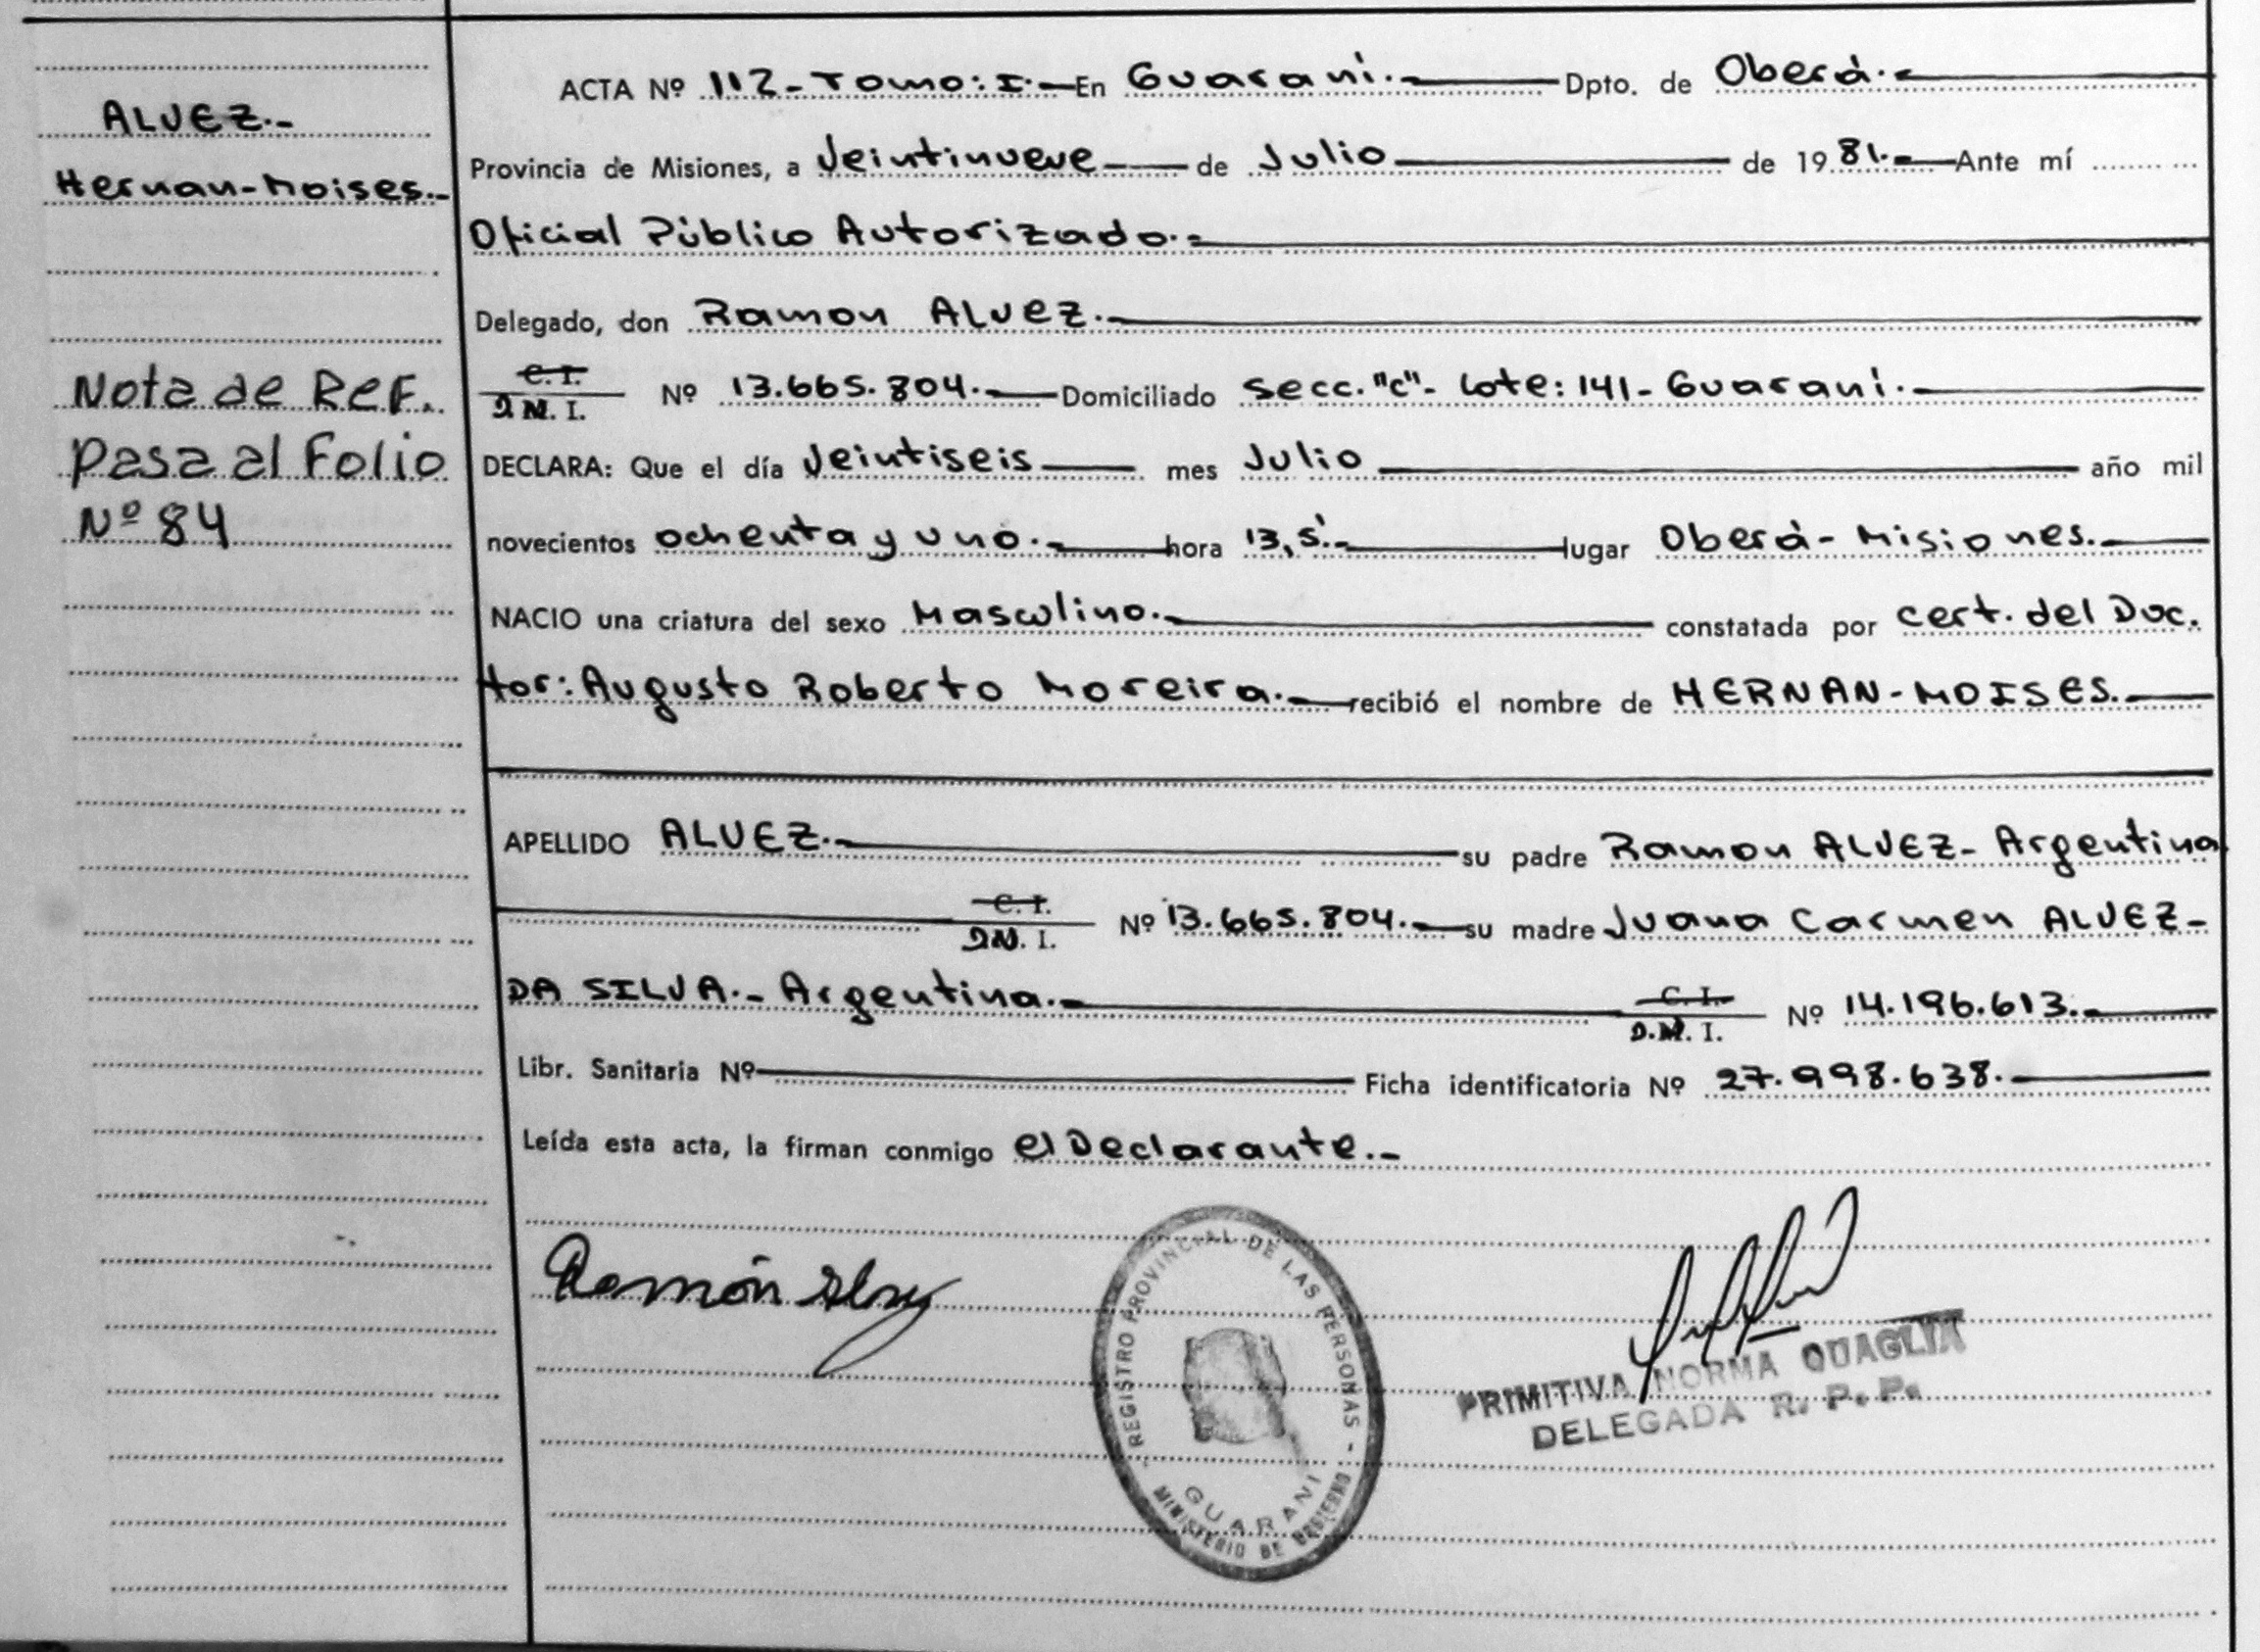 ALVEZ.-
Hernan-Moises.-
Nota de REF.
Pasa al Folio
Nº 84
ACTA Nº 112- Tomo: I.- En Guaraní.- Dpto. de Oberá.-
Provincia de Misiones, a Veintinueve de Julio de 1981.- Ante mí
Oficial Público Autorizado.-
Delegado, don Ramon ALVEZ.-
C. I.
D N. I. Nº 13.665.804.- Domiciliado Secc. "C"- Lote: 141- Guaraní.-
DECLARA: Que el día Veintiseis mes Julio año mil
novecientos ochenta y uno.- hora 13,5'.- lugar Oberá- Misiones.-
NACIO una criatura del sexo Masculino.- constatada por Cert. del Doc.
tor: Augusto Roberto Moreira.- recibió el nombre de HERNAN-MOISES.-
APELLIDO ALVEZ.- su padre Ramon ALVEZ- Argentina
C. I.
D N. I. Nº 13.665.804.- su madre Juana Carmen ALVEZ-
DA SILVA.- Argentina.- C. I.
D. N. I. Nº 14.196.613.-
Libr. Sanitaria Nº Ficha identificatoria Nº 27.998.638.-
Leída esta acta, la firman conmigo el Declarante.-
Ramón Alvez
REGISTRO PROVINCIAL DE LAS PERSONAS -
GUARANI
MINISTERIO DE GOBIERNO
PRIMITIVA NORMA QUAGLIA
DELEGADA R. P. P.